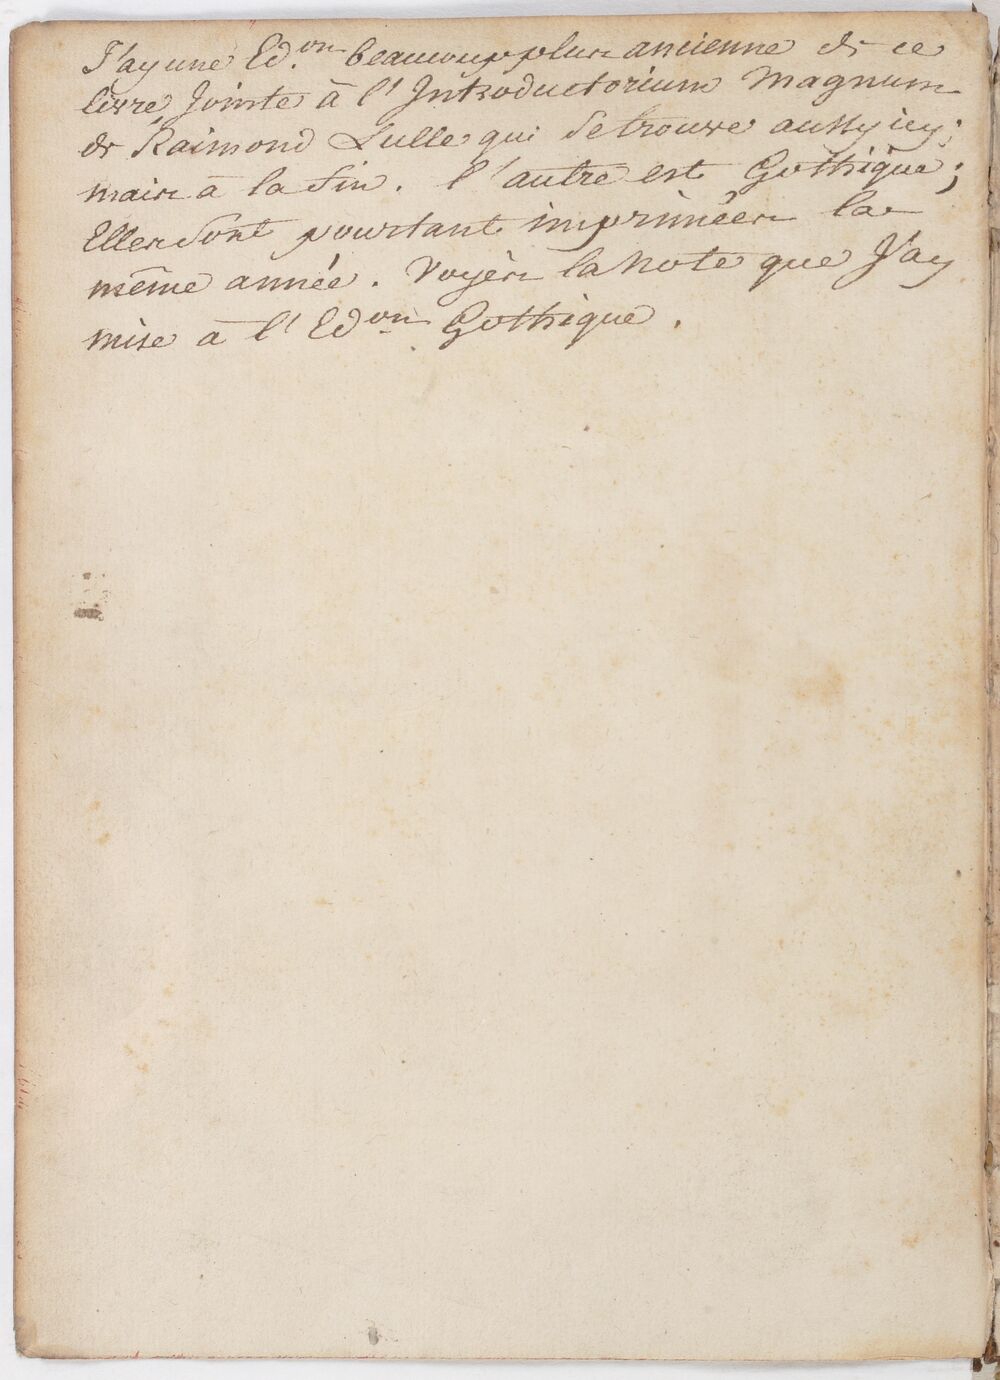 J'ay une Ed.on beaucoup plus ancienne de ce
livre, Jointe à l'Introductorium Magnum
de Raimond Lulle qui Se trouve aussy icy;
mais à la fin. l'autre est Gothique;
Elles Sont pourtant imprimées la
même année. Voyés la Note que J'ay
mise à l'Ed.on Gothique.